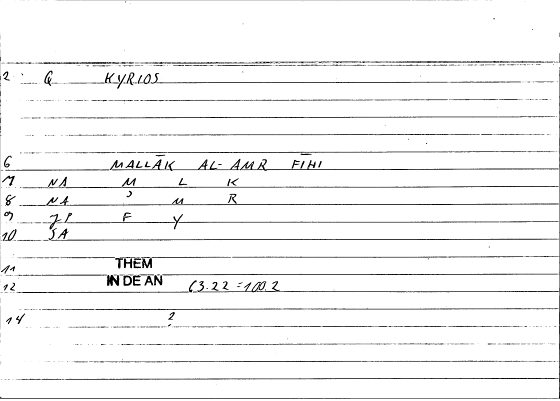 2 G KYRIOS
6 MALLĀK AL-AMR FĪHI
7 NA M L K
8 NA ʾ M R
9 JP F Y
10 SA
11 THEM
12 IN DE AN C3.22 =100.2
14 ?